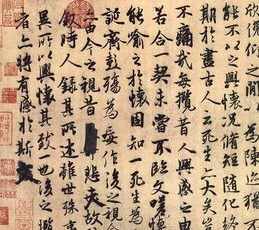 欣俛仰之間以為陳迹猶不
能不以之興懷況脩短隨化終
期於盡古人云死生亦大矣豈
不痛哉每攬昔人興感之由
若合一契未嘗不臨文嗟悼
能喻之於懷固知一死生為
誕齊彭殤為妄作後之視今
亦由今之視昔悲夫故
叙時人錄其所述雖世殊事
異所以興懷其致一也後之攬
者亦將有感於斯